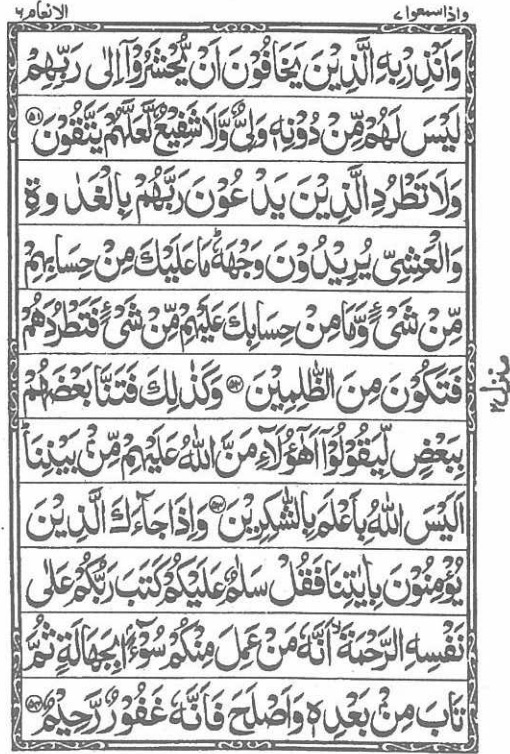 واذاسمعوا ٧ الانعام ٦
وَاَنْذِرْ بِهِ الَّذِيْنَ يَخَافُوْنَ اَنْ يُّحْشَرُوْٓا اِلٰى رَبِّهِمْ
لَيْسَ لَهُمْ مِّنْ دُوْنِهٖ وَلِيٌّ وَّلَا شَفِيْعٌ لَّعَلَّهُمْ يَتَّقُوْنَ ۝٥١
وَلَا تَطْرُدِ الَّذِيْنَ يَدْعُوْنَ رَبَّهُمْ بِالْغَدٰوةِ
وَالْعَشِيِّ يُرِيْدُوْنَ وَجْهَهٗ ؕ مَا عَلَيْكَ مِنْ حِسَابِهِمْ
مِّنْ شَيْءٍ وَّمَا مِنْ حِسَابِكَ عَلَيْهِمْ مِّنْ شَيْءٍ فَتَطْرُدَهُمْ
فَتَكُوْنَ مِنَ الظّٰلِمِيْنَ ۝٥٢ وَكَذٰلِكَ فَتَنَّا بَعْضَهُمْ
بِبَعْضٍ لِّيَقُوْلُوْٓا اَهٰٓؤُلَآءِ مَنَّ اللّٰهُ عَلَيْهِمْ مِّنْۢ بَيْنِنَا ؕ
اَلَيْسَ اللّٰهُ بِاَعْلَمَ بِالشّٰكِرِيْنَ ۝٥٣ وَاِذَا جَآءَكَ الَّذِيْنَ
يُؤْمِنُوْنَ بِاٰيٰتِنَا فَقُلْ سَلٰمٌ عَلَيْكُمْ كَتَبَ رَبُّكُمْ عَلٰى
نَفْسِهِ الرَّحْمَةَ ۙ اَنَّهٗ مَنْ عَمِلَ مِنْكُمْ سُوْٓءًۢا بِجَهَالَةٍ ثُمَّ
تَابَ مِنْۢ بَعْدِهٖ وَاَصْلَحَ فَاَنَّهٗ غَفُوْرٌ رَّحِيْمٌ ۝٥٤
منزل ٢